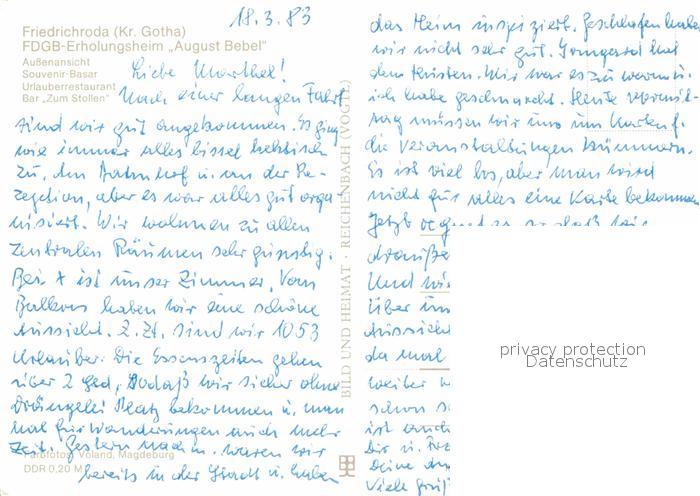 18.3.83
Friedrichroda (Kr. Gotha)
FDGB-Erholungsheim „August Bebel"
Außenansicht
Souvenir-Basar
Urlauberrestaurant
Bar „Zum Stollen"
Liebe Marthel!
Nach einer langen Fahrt
sind wir gut angekommen. Es ging
wie immer alles bissel hektisch
zu, den Bahnhof u. an der Re-
zeption, aber es war alles gut orga-
nisiert. Wir wohnen zu allen
zentralen Räumen sehr günstig.
Bei x ist unser Zimmer. Vom
Balkon haben wir eine schöne
Aussicht. Z.Zt. sind wir 1053
Urlauber. Die Essenszeiten gehen
über 2 Std, sodaß wir sicher ohne
Drängelei Platz bekommen u. man
mal für Wanderungen auch mehr
Zeit. Gestern nachm. waren wir
Farbfoto: Voland, Magdeburg
DDR 0,20 M
bereits in der Stadt u. haben
BILD UND HEIMAT · REICHENBACH (VOGTL)
das Heim inspiziert. Geschlafen haben
wir nicht sehr gut. Irmgard hat
den Husten. Mir war es zu warm u.
ich habe geschnarcht. Heute vormit-
tag müssen wir uns um Karten f.
die Veranstaltungen kümmern.
Es ist viel los, aber man wird
nicht für alles eine Karte bekommen
Jetzt regnet es so daß wir
drauße
Und wi
über un
Aussicht
da mal
weiter
schon s
ist auch
Dir u.
Deine
Viele Grüß
privacy protection
Datenschutz